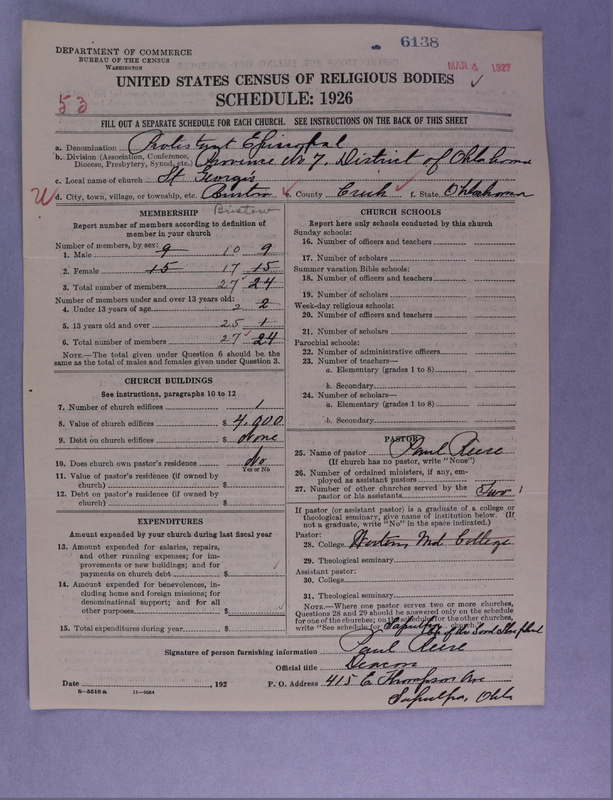 6138
DEPARTMENT OF COMMERCE
BUREAU OF THE CENSUS
WASHINGTON
MAR 4 1927
UNITED STATES CENSUS OF RELIGIOUS BODIES
SCHEDULE: 1926
53
FILL OUT A SEPARATE SCHEDULE FOR EACH CHURCH. SEE INSTRUCTIONS ON THE BACK OF THIS SHEET
a. Denomination Protestant Episcopal
b. Division (Association, Conference, Diocese, Presbytery, Synod, etc.) Province No. 7, District of Oklahoma
c. Local name of church St George's
d. City, town, village, or township, etc. e. County Creek f. State Oklahoma
Bristow
MEMBERSHIP
Report number of members according to definition of
member in your church
Number of members, by sex:
1. Male 9 10 9
2. Female 15 17 15
3. Total number of members 27 24
Number of members under and over 13 years old:
4. Under 13 years of age 2 2
5. 13 years old and over 25 1
6. Total number of members 27 24
NOTE.—The total given under Question 6 should be the
same as the total of males and females given under Question 3.
CHURCH BUILDINGS
See instructions, paragraphs 10 to 12
7. Number of church edifices 1
8. Value of church edifices $ 4,000
9. Debt on church edifices $ None
10. Does church own pastor's residence No
Yes or No
11. Value of pastor's residence (if owned by
church) $
12. Debt on pastor's residence (if owned by
church) $
EXPENDITURES
Amount expended by your church during last fiscal year
13. Amount expended for salaries, repairs,
and other running expenses; for im-
provements or new buildings; and for
payments on church debt $
14. Amount expended for benevolences, in-
cluding home and foreign missions; for
denominational support; and for all
other purposes $
15. Total expenditures during year $
CHURCH SCHOOLS
Report here only schools conducted by this church
Sunday schools:
16. Number of officers and teachers
17. Number of scholars
Summer vacation Bible schools:
18. Number of officers and teachers
19. Number of scholars
Week-day religious schools:
20. Number of officers and teachers
21. Number of scholars
Parochial schools:
22. Number of administrative officers
23. Number of teachers—
a. Elementary (grades 1 to 8)
b. Secondary
24. Number of scholars—
a. Elementary (grades 1 to 8)
b. Secondary
PASTOR
25. Name of pastor Paul Reese
(If church has no pastor, write "None")
26. Number of ordained ministers, if any, em-
ployed as assistant pastors
27. Number of other churches served by the
pastor or his assistants Two
If pastor (or assistant pastor) is a graduate of a college or
theological seminary, give name of institution below. (If
not a graduate, write "No" in the space indicated.)
Pastor:
28. College Western Md College
29. Theological seminary
Assistant pastor:
30. College
31. Theological seminary
NOTE.—Where one pastor serves two or more churches,
Questions 28 and 29 should be answered only on the schedule
for one of the churches; on the schedule for the other churches,
write "See schedule for Sapulpa church." Ch of the Good Shepherd
Signature of person furnishing information Paul Reese
Official title Deacon
Date , 192 P. O. Address 415 E Thompson Ave
Sapulpa, Okla
8—5518a 11—9564